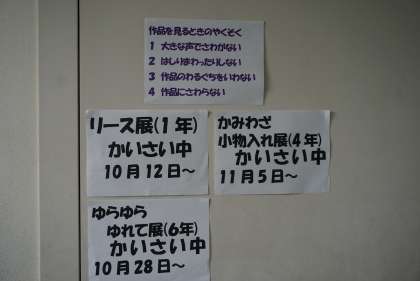 作品を見るときのやくそく
1 大きな声でさわがない
2 はしりまわったりしない
3 作品のわるぐちをいわない
4 作品にさわらない
リース展(1年)
かいさい中
10月12日～
かみわざ
小物入れ展(4年)
かいさい中
11月5日～
ゆらゆら
ゆれて展(6年)
かいさい中
10月28日～